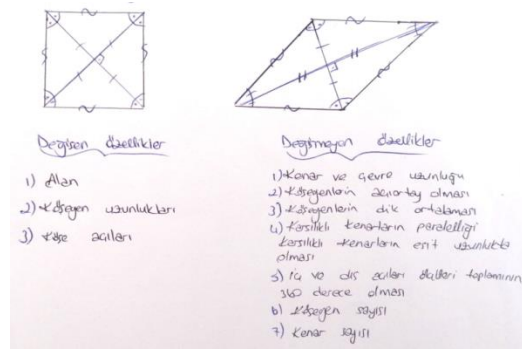 Değişen özellikler
1) Alan
2) Köşegen uzunlukları
3) Köşe açıları
Değişmeyen özellikler
1) Kenar ve çevre uzunluğu
2) Köşegenlerin açıortay olması
3) Köşegenlerin dik ortalaması
4) Karşılıklı kenarların paralelliği
karşılıklı kenarların eşit uzunlukta
olması
5) İç ve dış açıları ölçüleri toplamının
360 derece olması
6) Köşegen sayısı
7) Kenar sayısı